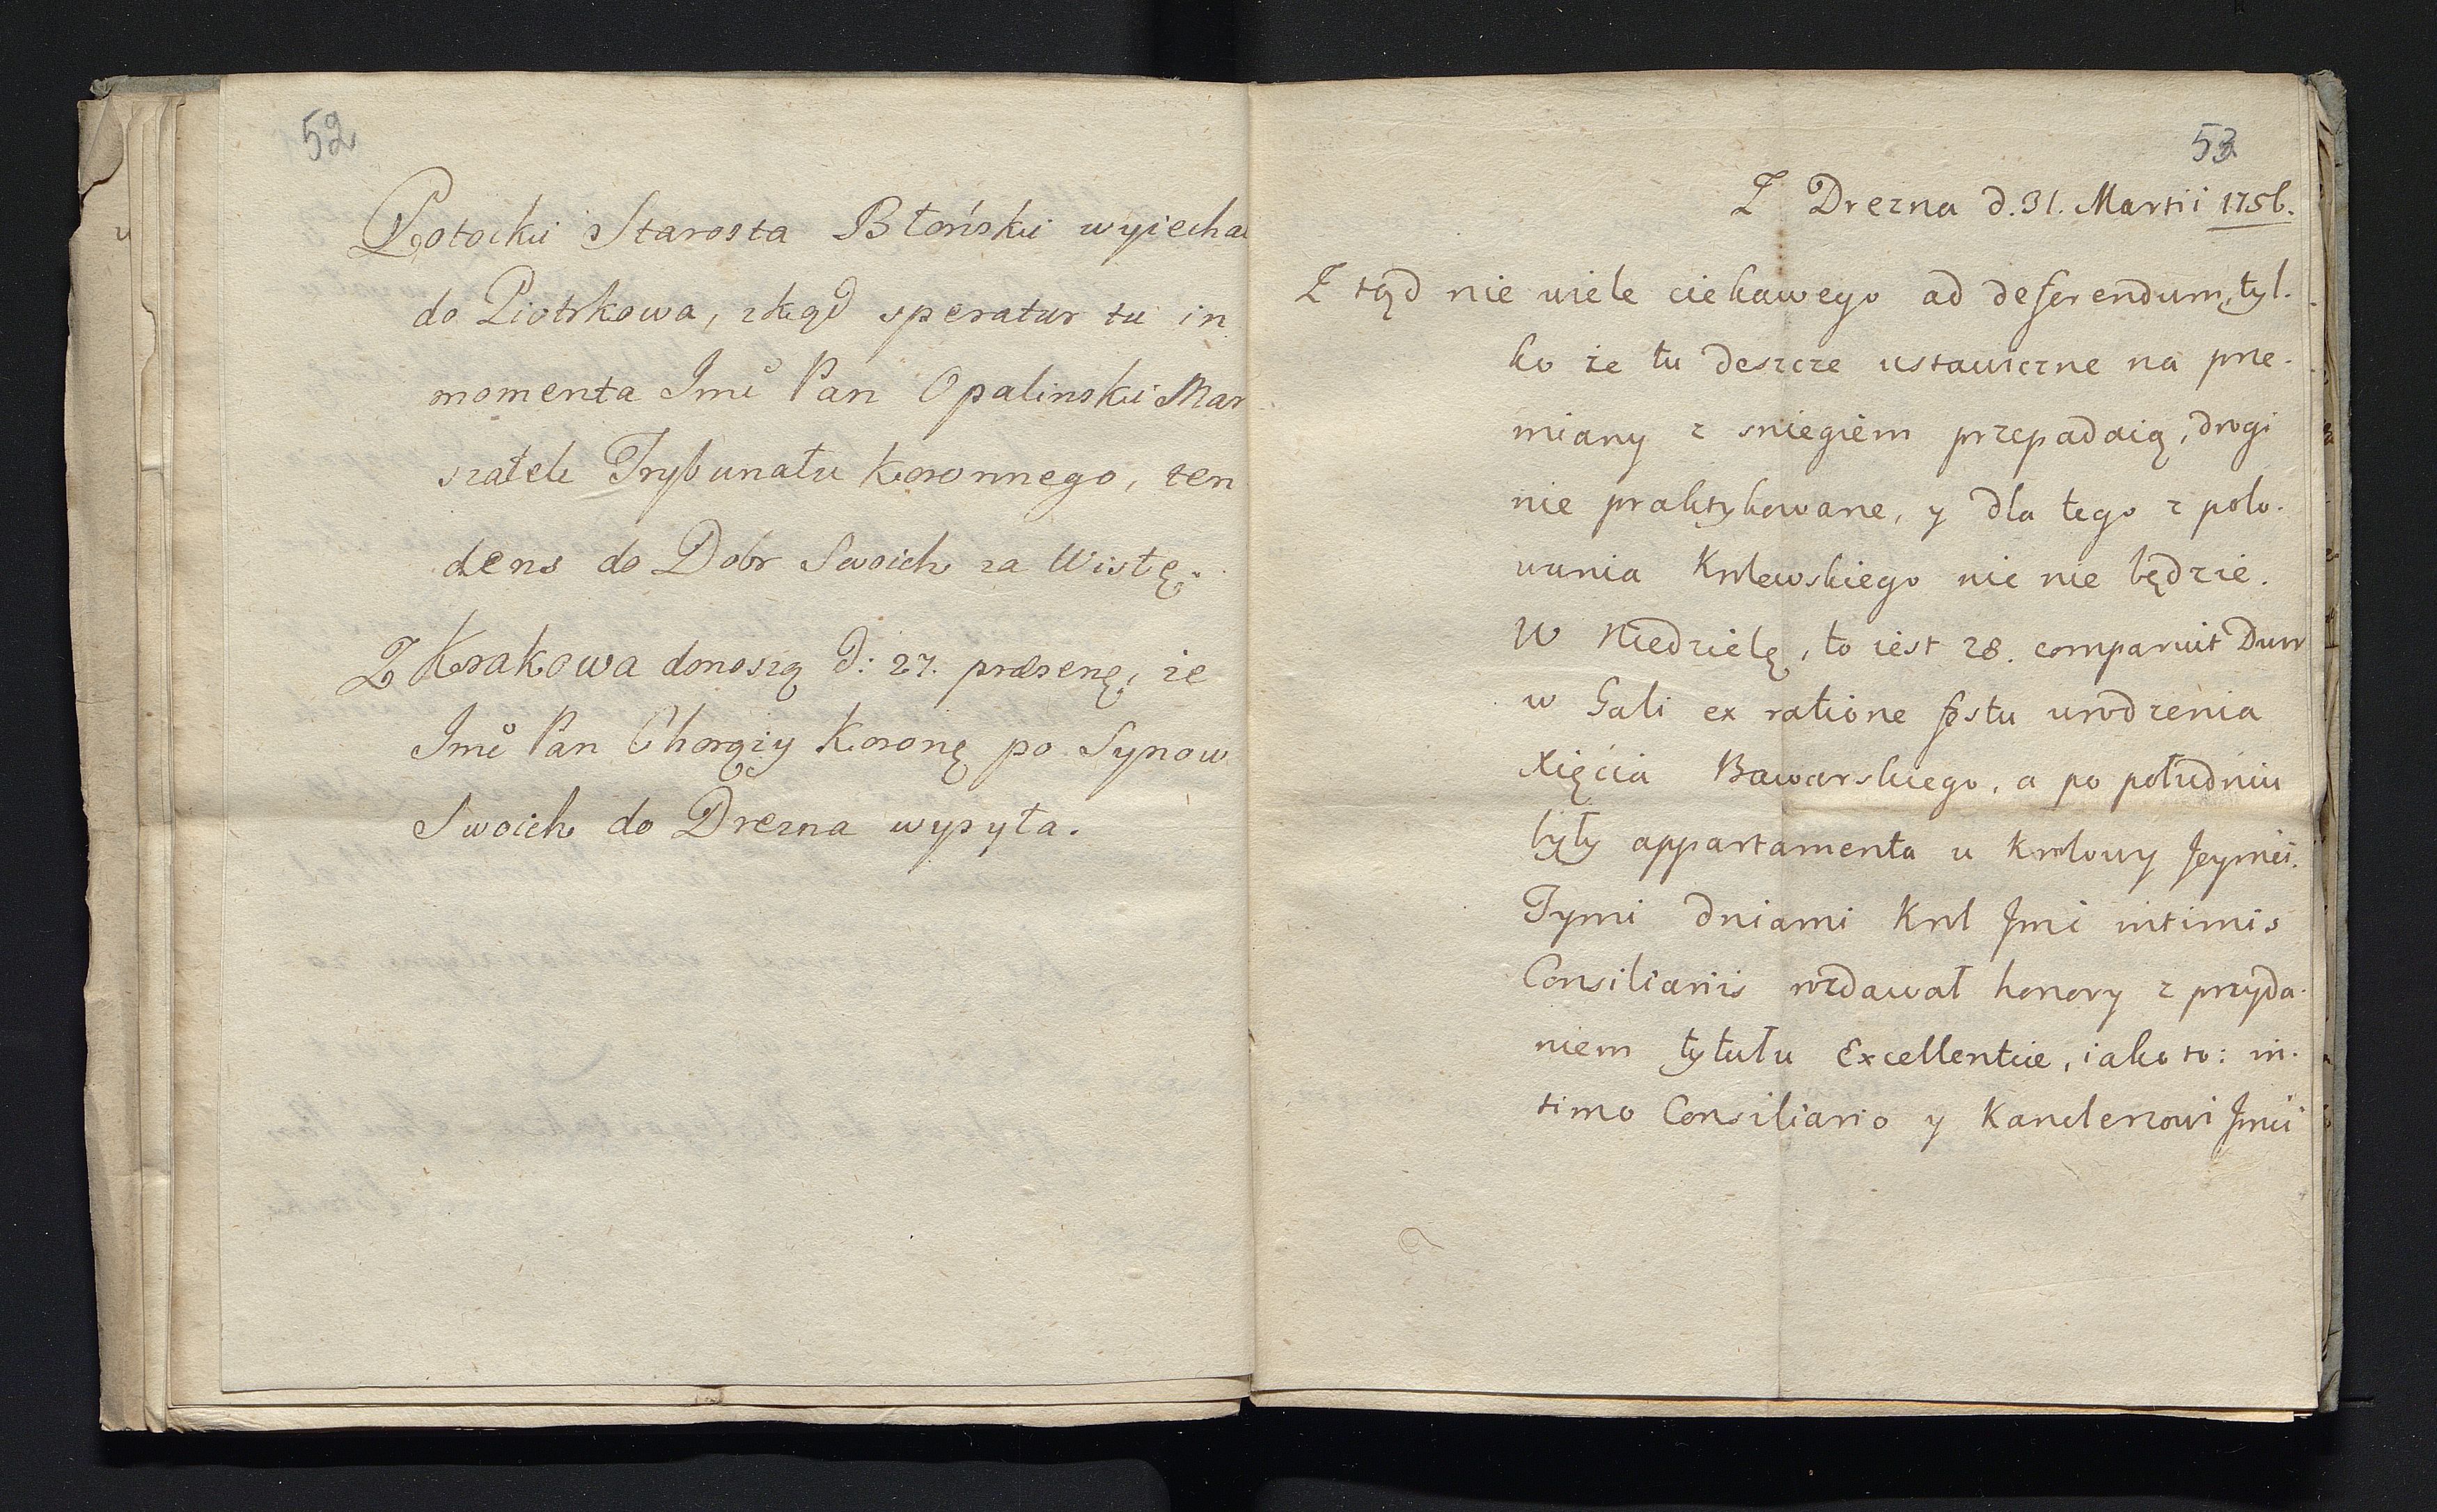 52
Potocki Starosta Błoński wyiechał
do Piotrkowa, zkąd speratur tu in
momenta Jmć Pan Opalinski Mar
szałek Trybunału Koronnego, ten
dens do Dobr Swoich za Wisłę.
Z Krakowa donoszą d: 27. præsenę, że
Jmć Pan Chorąży Koronę po Synow
Swoich do Drezna wysyła.
53
Z Drezna d. 31. Martii 1756.
Z tąd nie wiele ciekawego ad deferendum, tyl-
ko że tu deszcze ustawiczne na prze-
miany z sniegiem przepadaią, drogi
nie praktykowane, y dla tego z polo-
wania Krolewskiego nic nie będzie.
W Niedzielę, to iest 28. comparuit Dwor
w Gali ex ratione festu urodzenia
Xięcia Bawarskiego, a po południu
były appartamenta u Krolowy Jeymći.
Tymi dniami Krol Jmć intimis
Consiliariis rozdawał honory z przyda-
niem tytułu Excellentiæ, iako to: in-
timo Consiliario y Kanclerzowi Jmći